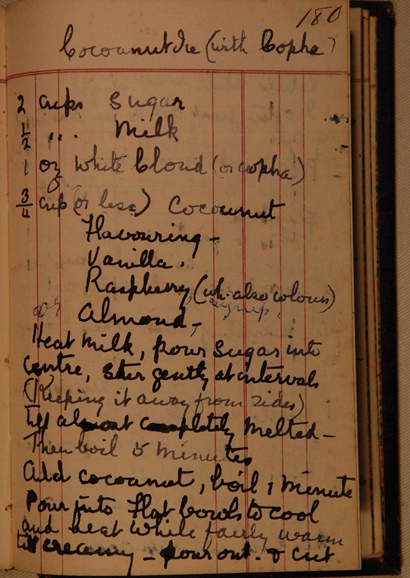 180
Cocoanut Ice (with Copha)
2 cups Sugar
1/2 ,, . Milk
1 oz White Cloud (or copha)
3/4 cup (or less) Cocoanut
Flavouring -
Vanilla.
Raspberry (wh. also colours)
or syrup
Almond, -
Heat Milk, pour Sugar into
Centre, Stir gently at intervals
(Keeping it away from sides)
till almost completely Melted -
Then boil 5 minutes
Add cocoanut, boil 1 minute
Pour into flat bowls to cool
and beat while fairly warm
till creamy - pour out. & cut